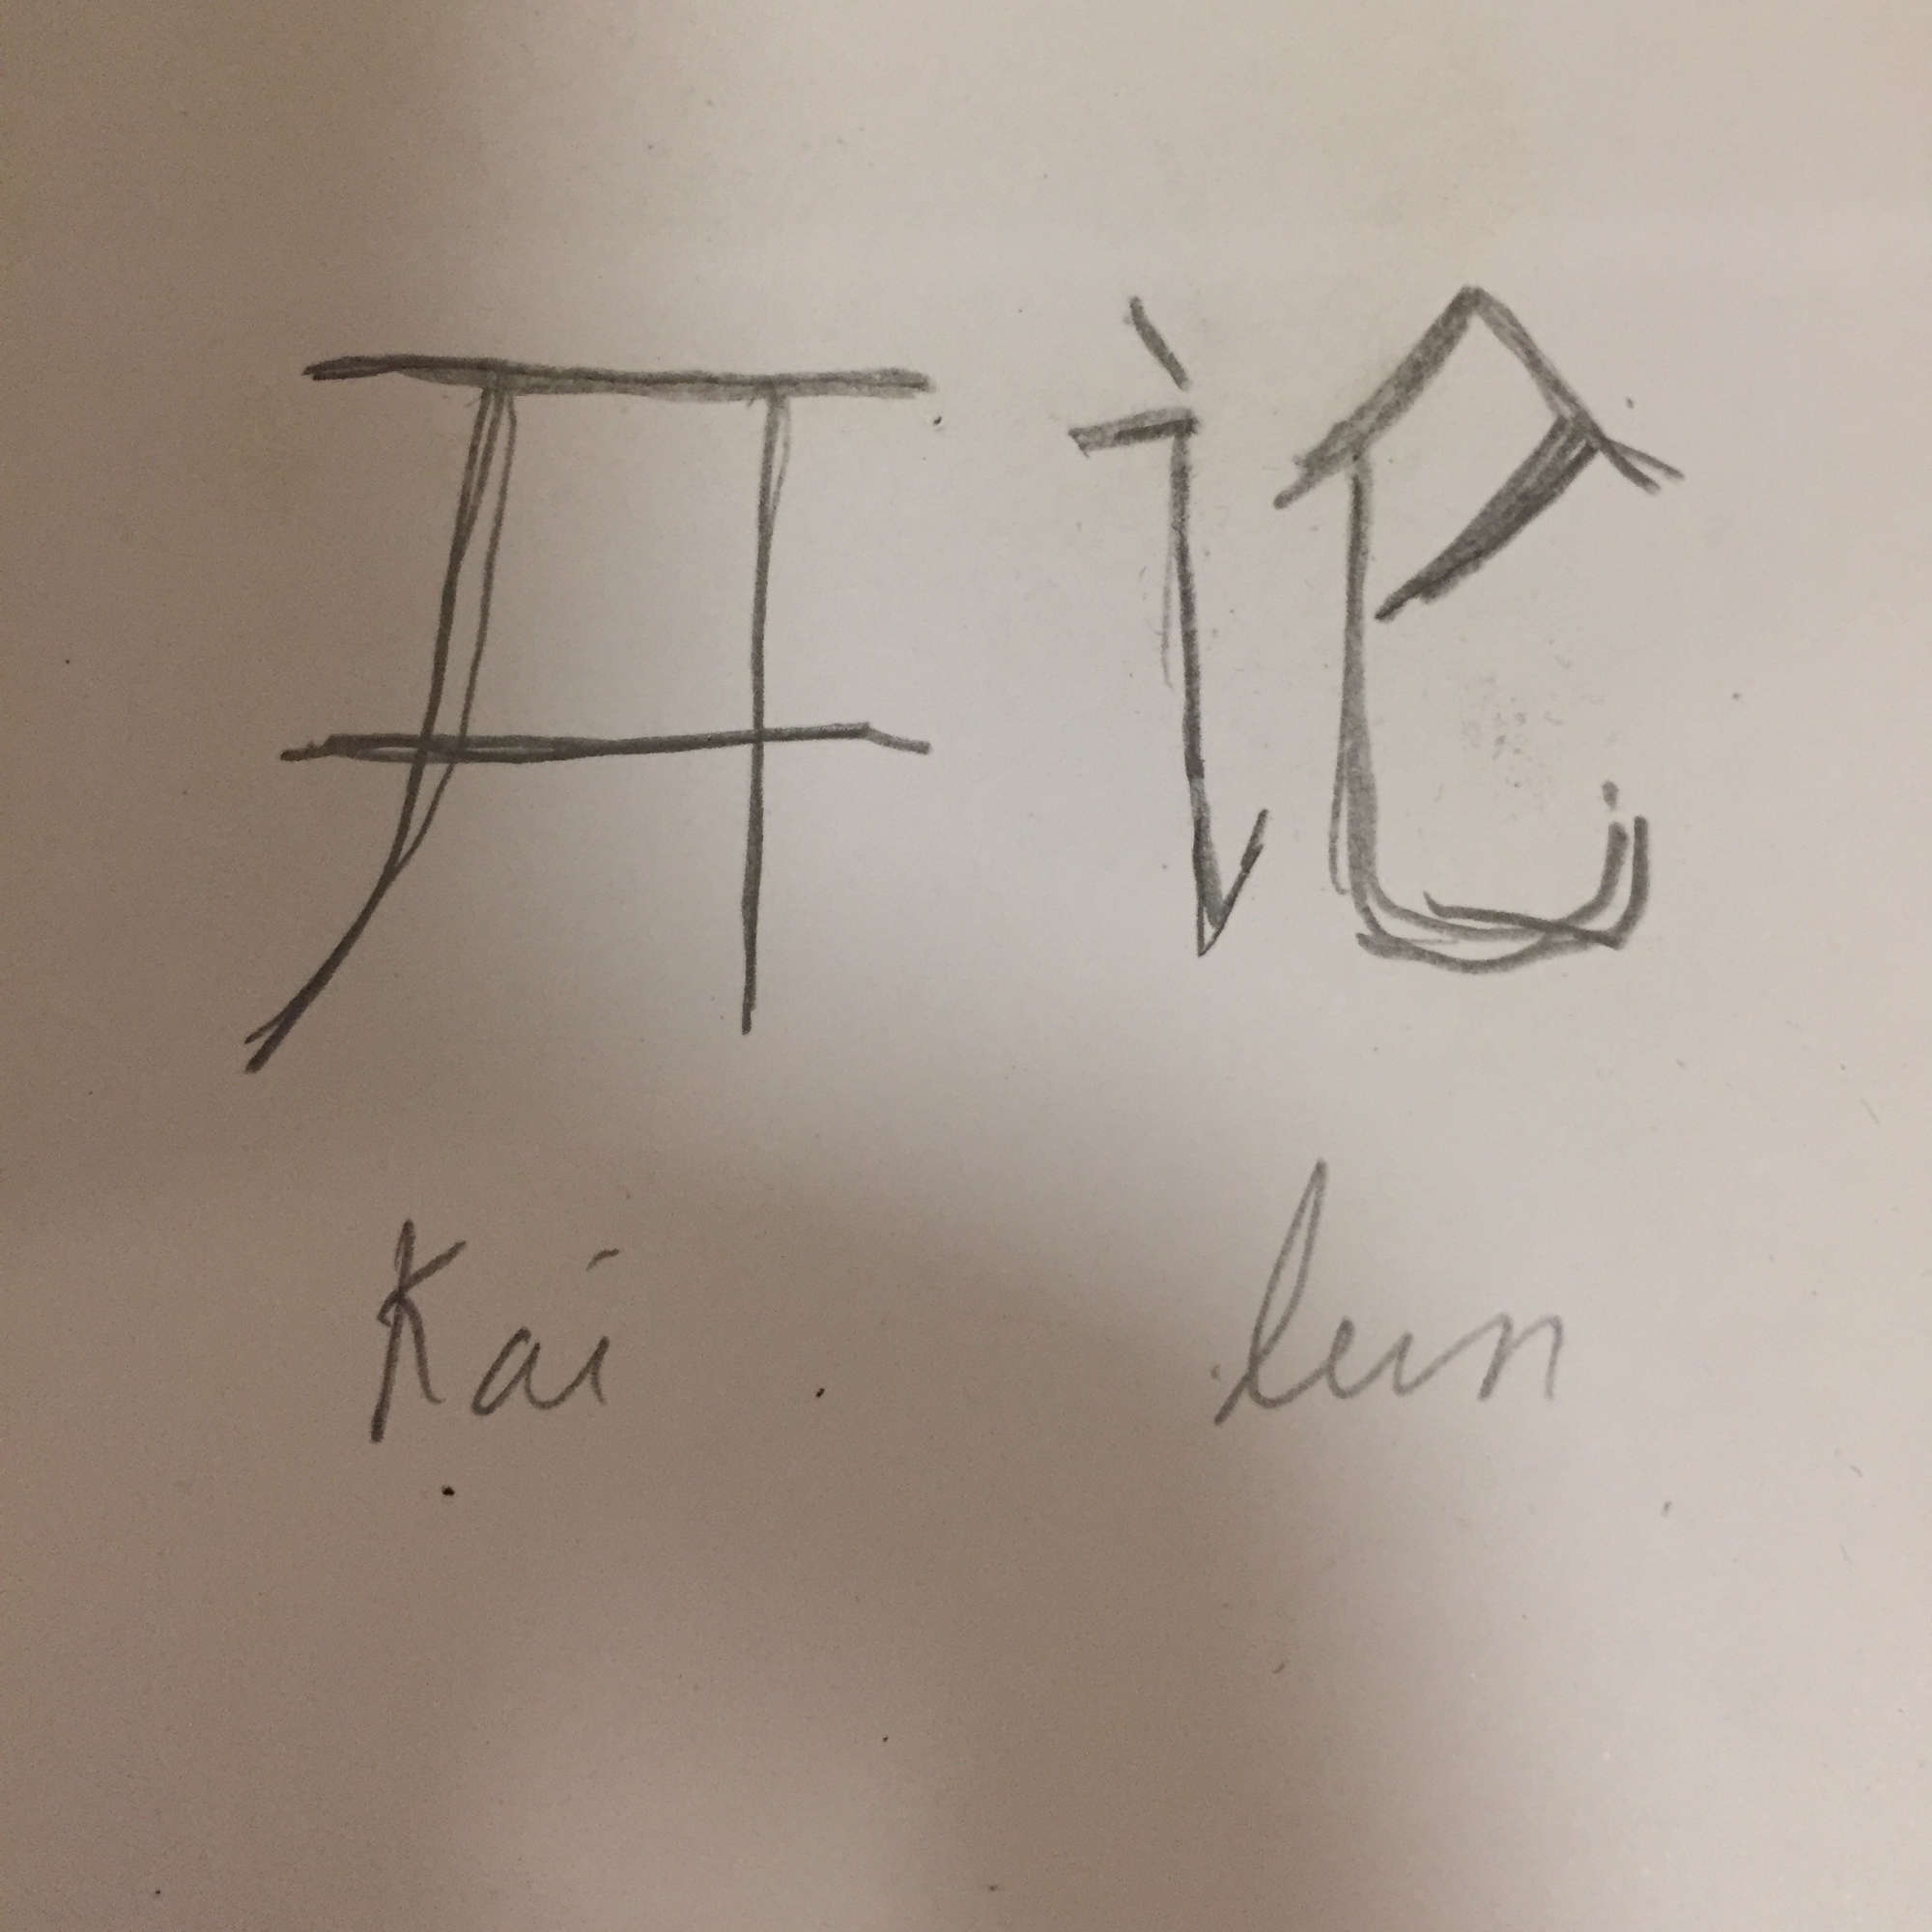 开论
Kai lun